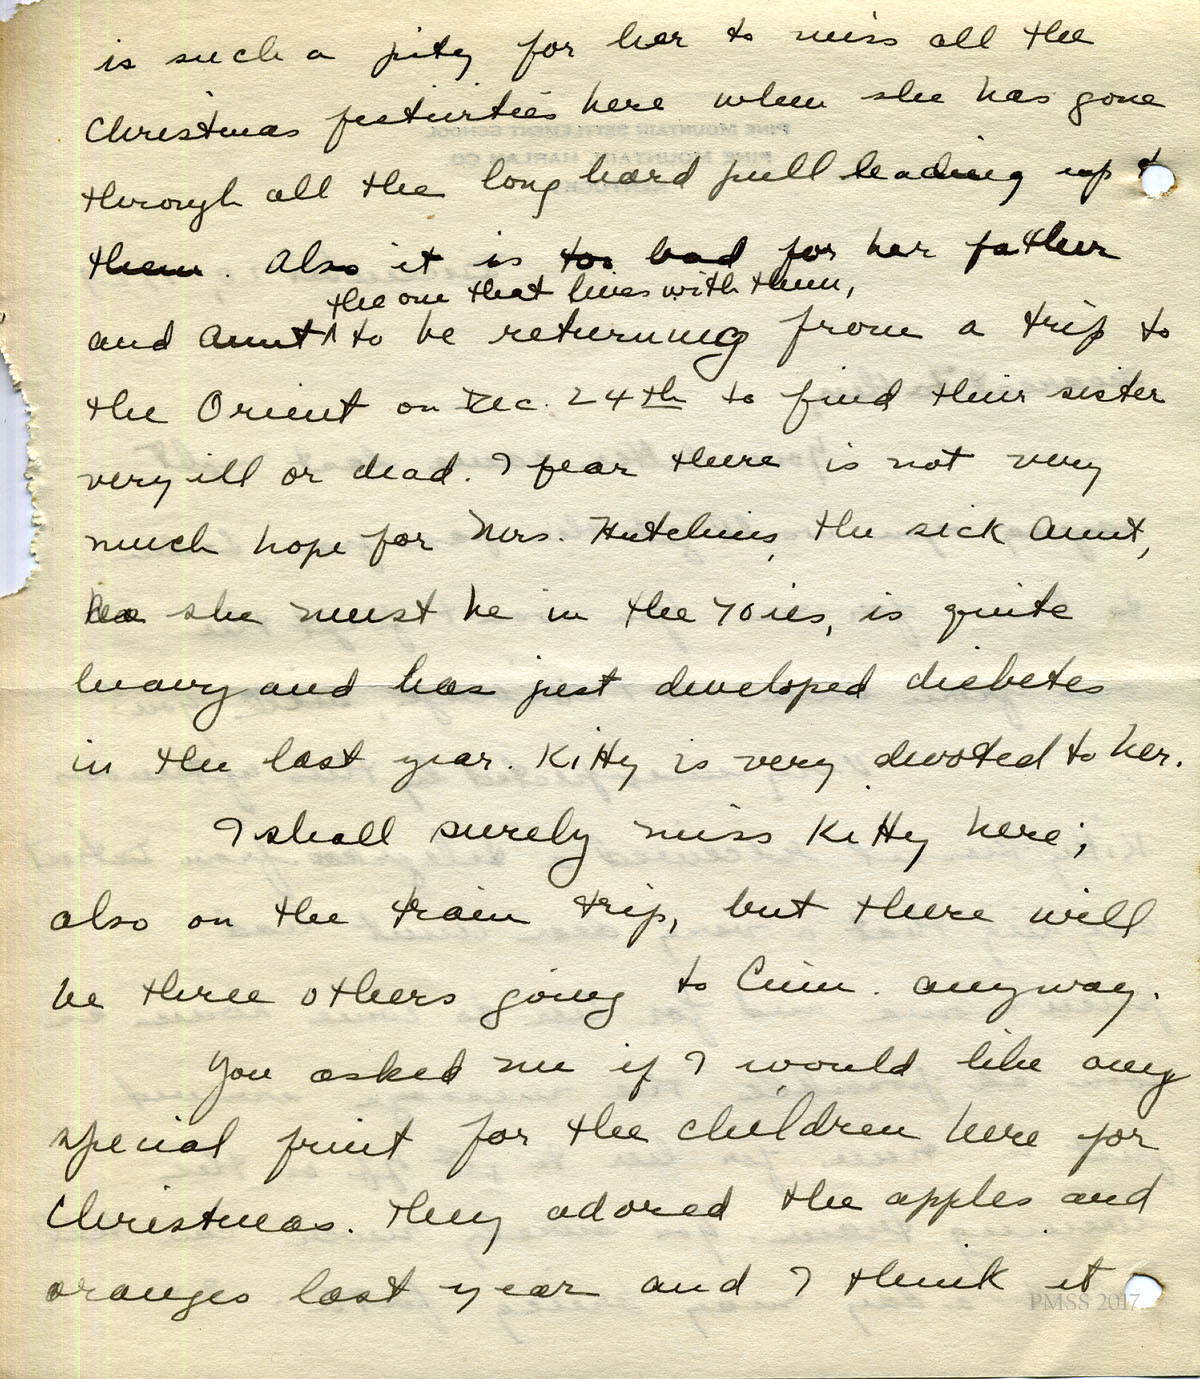 is such a pity for her to miss all the
Christmas festivities here when she has gone
through all the long hard pull leading up t
them. Also it is too bad for her father
the one that lives with them,
and Aunt ^ to be returning from a trip to
the Orient on Dec. 24th to find their sister
very ill or dead. I fear there is not very
much hope for Mrs. Hutchins, the sick Aunt,
she must be in the 70ies, is quite
heavy and has just developed diebetes
in the last year. Kitty is very devoted to her.
I shall surely miss Kitty here;
also on the train trip, but there will
be three others going to Cinn. anyway.
You asked me if I would like any
special fruit for the children here for
Christmas. They adored the apples and
oranges last year and I think it
PMSS 2017